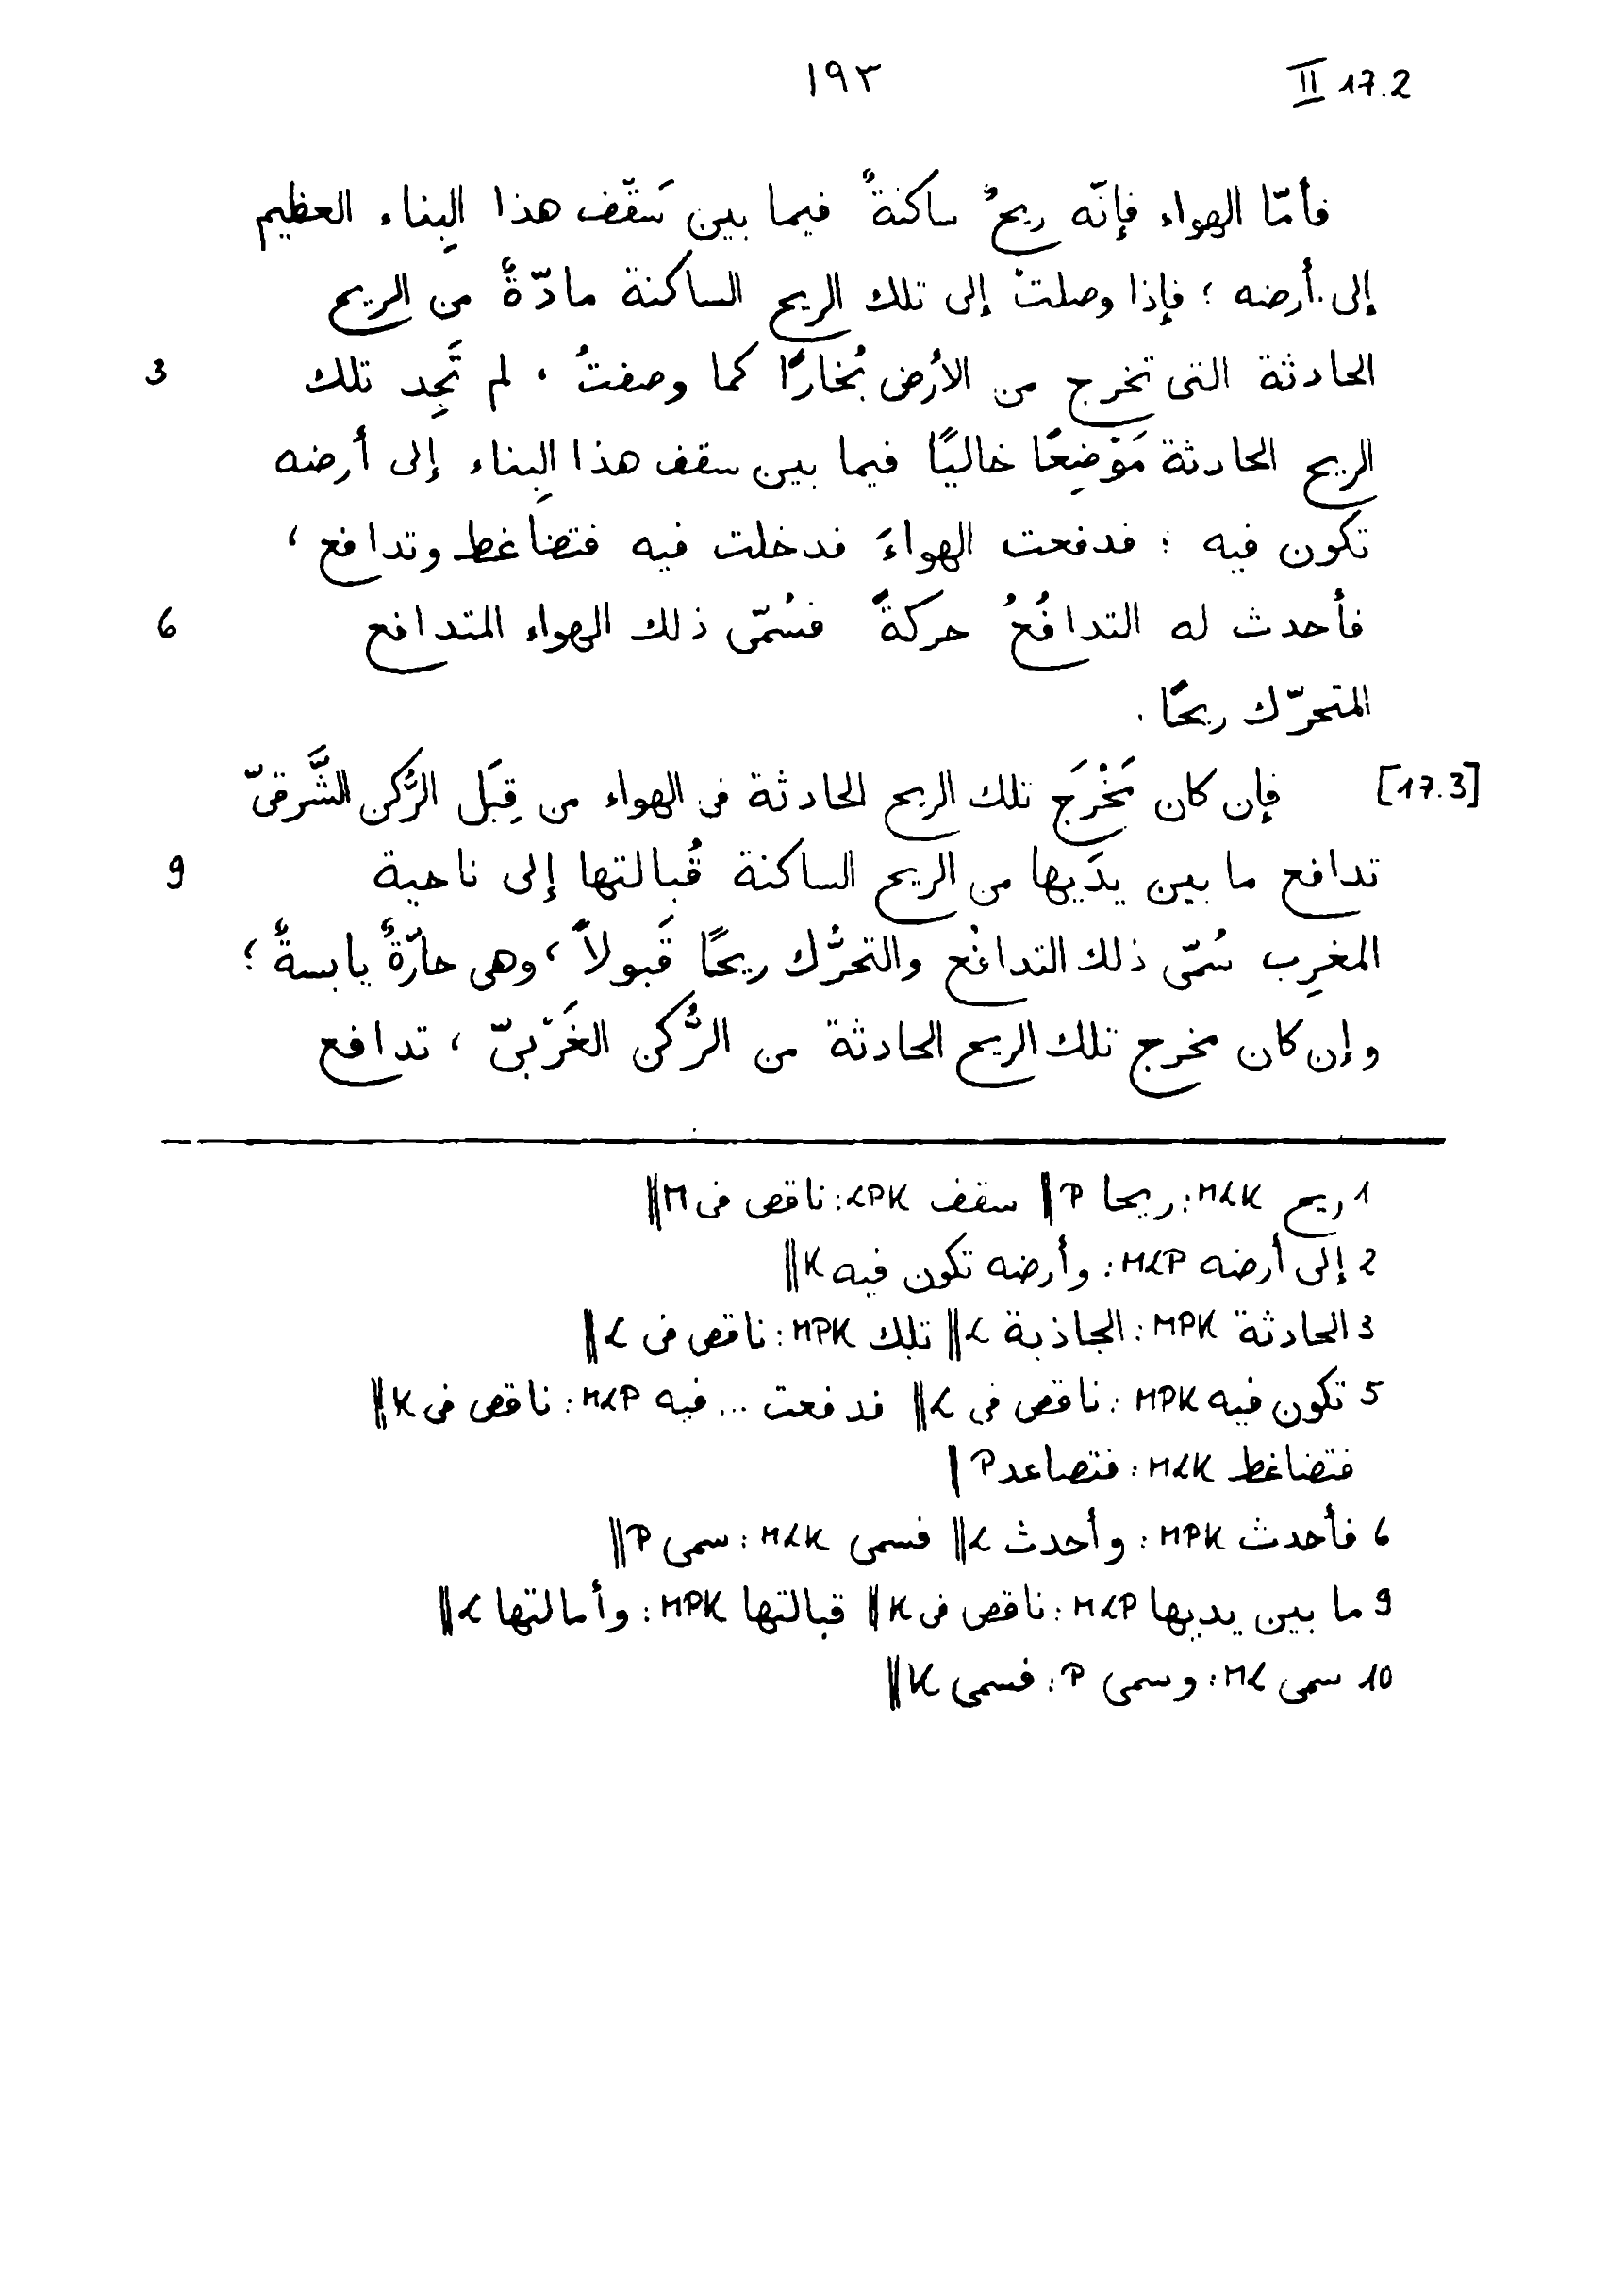 II 17.2
١٩٣
فأمّا الهواء فإنّه ريحٌ ساكنةٌ فيما بين سَقْف هذا البِناء العظيم
إلى أرضه ؛ فإذا وصلتْ إلى تلك الريح الساكنة مادّةٌ من الريح
الحادثة التى تخرج من الأرض بُخارًا كما وصفتُ ، لم تَجِد تلك 3
الريح الحادثة مَوْضِعًا خاليًا فيما بين سقف هذا البِناء إلى أرضه
تكون فيه ؛ فدفعت الهواءَ فدخلت فيه فتضاغط وتدافع ،
فأحدث له التدافُعُ حركةً فسُمّى ذلك الهواء المتدافع 6
المتحرّك ريحًا .
[17.3] فإن كان مَخْرَج تلك الريح الحادثة فى الهواء من قِبَل الرُّكن الشَّرقىّ
تدافع ما بين يدَيها من الريح الساكنة قُبالتها إلى ناحية 9
المغرِب سُمّى ذلك التدافُع والتحرُّك ريحًا قَبولاً ، وهى حارّةٌ يابسةٌ ؛
وإن كان مخرج تلك الريح الحادثة من الرُّكن الغَرْبىّ ، تدافع
1 ريح MLK : ريحا P ‖ سقف LPK : ناقص فى M ‖
2 إلى أرضه MLP : وأرضه تكون فيه K ‖
3 الحادثة MPK : الجاذبة L ‖ تلك MPK : ناقص فى L ‖
5 تكون فيه MPK : ناقص فى L ‖ فدفعت ... فيه MLP : ناقص فى K ‖
فتضاغط MLK : فتصاعد P |
6 فأحدث MPK : وأحدث L ‖ فسمى MLK : سمى P ‖
9 ما بين يديها MLP : ناقص فى K ‖ قبالتها MPK : وأمالتها L ‖
10 سمى ML : وسمى P : فسمى K ‖